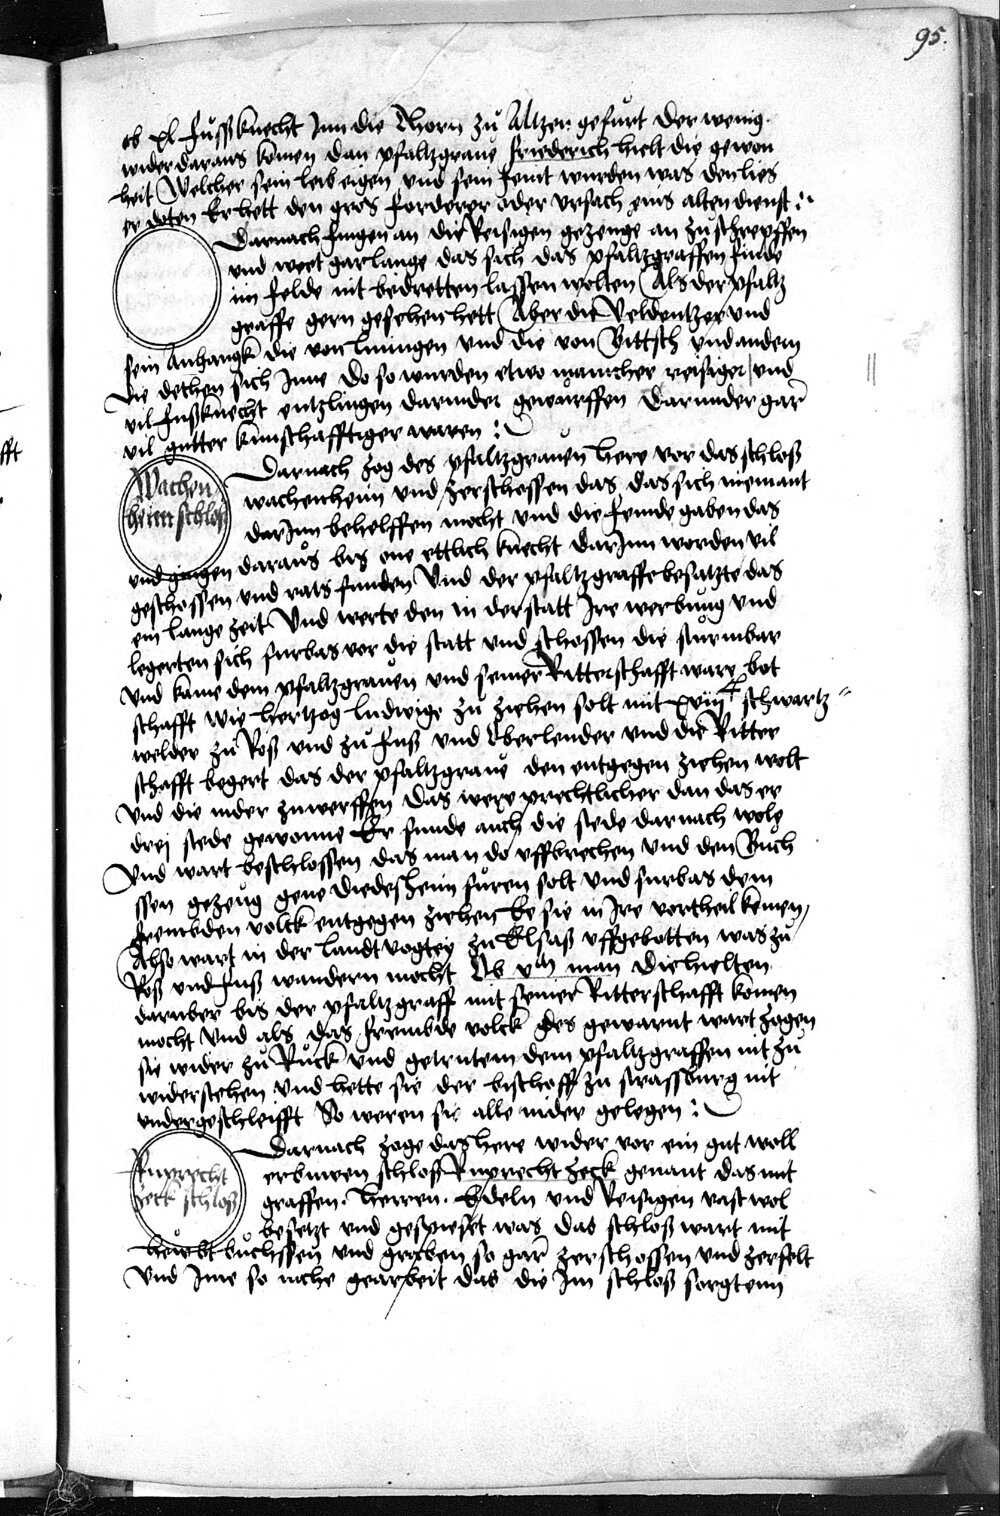 95.
ob xl fuosknecht Inn die Thorn zu Altzen gefurt der wenig
wider daraus komen dan pfaltzgraue friederich hielt die gewon
heit Welcher sein leib eigen vnd sein feint wurden was den lies
er doten Er hett den gros forderer oder vrsach eins alten dienst :
Darnach fingen an die Reisigen gezeuge an zu schrepffen
vnd wert gar lange das sich das pfaltzgraffen finde
im felde nit bedretten lassen wolten Als der pfaltz
graffe gern gesehen hett Aber die Veldentzer vnd
sein Anhangk die von liningen vnd die von Bittsch vnd andern
die dethen sich Inne Do so wurden etwo mancher reisiger vnd
vil fusknecht entzlingen darnider geworffen Darunder gar
vil gutter kuntschafftiger waren :
Wachen
heim schloß
Darnach zog des pfaltzgrauen here vor das schloß
wachenheim vnd zerschossen das das sich niemant
dar Inn behelffen mocht vnd die feinde gaben das
vnd gingen daraus bis one ettlich knecht dar Inn worden vil
geschossen vnd rats funden Vnd der pfaltzgraffe besatzte das
ein lange zeit Vnd werte den in der statt Ire werbung vnd
legerten sich furbas vor die statt vnd schossen die sturmbar
Vnd kame dem pfaltzgrauen vnd seiner Ritterschafft ware bot
schafft wie hertzog ludwige zu ziehen solt mit xviii schwartz
welder zu Roß vnd zu fuß vnd Oberlender vnd die Ritter
schafft begert das der pfaltzgraue den entgegen ziehen wolt
Vnd die nider zuwerffen Das were prechtlicher dan das er
drej stede gewonne Er funde auch die stede darnach wole
Vnd wart beschlossen das man do vffbrechen vnd den Buch
ssen gezeug gene Diedesheim furen solt vnd furbas dem
frembden volck entgegen ziehen Ee sie in Ire vortheil komen
Also wart in der landtvogtey zu Elsaß vffgebotten was zu
Roß vnd fuß wandern mocht Ob vm man die hielten
daruber bis der pfaltzgraff mit seiner Ritterschafft komen
mocht Vnd als das frembde volck des gewarnt wart zogen
sie wider zu Ruck vnd getrutem dem pfaltzgraffen nit zu
widerstehen Vnd hette sie der bischoff zu strassburg nit
vndergeschleifft So weren sie alle nider gelegen :
Ruprecht
zeck schloß
Darnach zoge das here wider vor ein gut woll
erbuwen schloß Ruprechtzeck genant das mit
graffen. Herren. Edeln vnd Reisigen vast wol
besetzt vnd gespieset was das schloß wart mit
heubt buchssen vnd graben so gar zerschossen vnd zerfelt
Vnd Ime so nahe gearbeit das die Im schloß sorgtenn